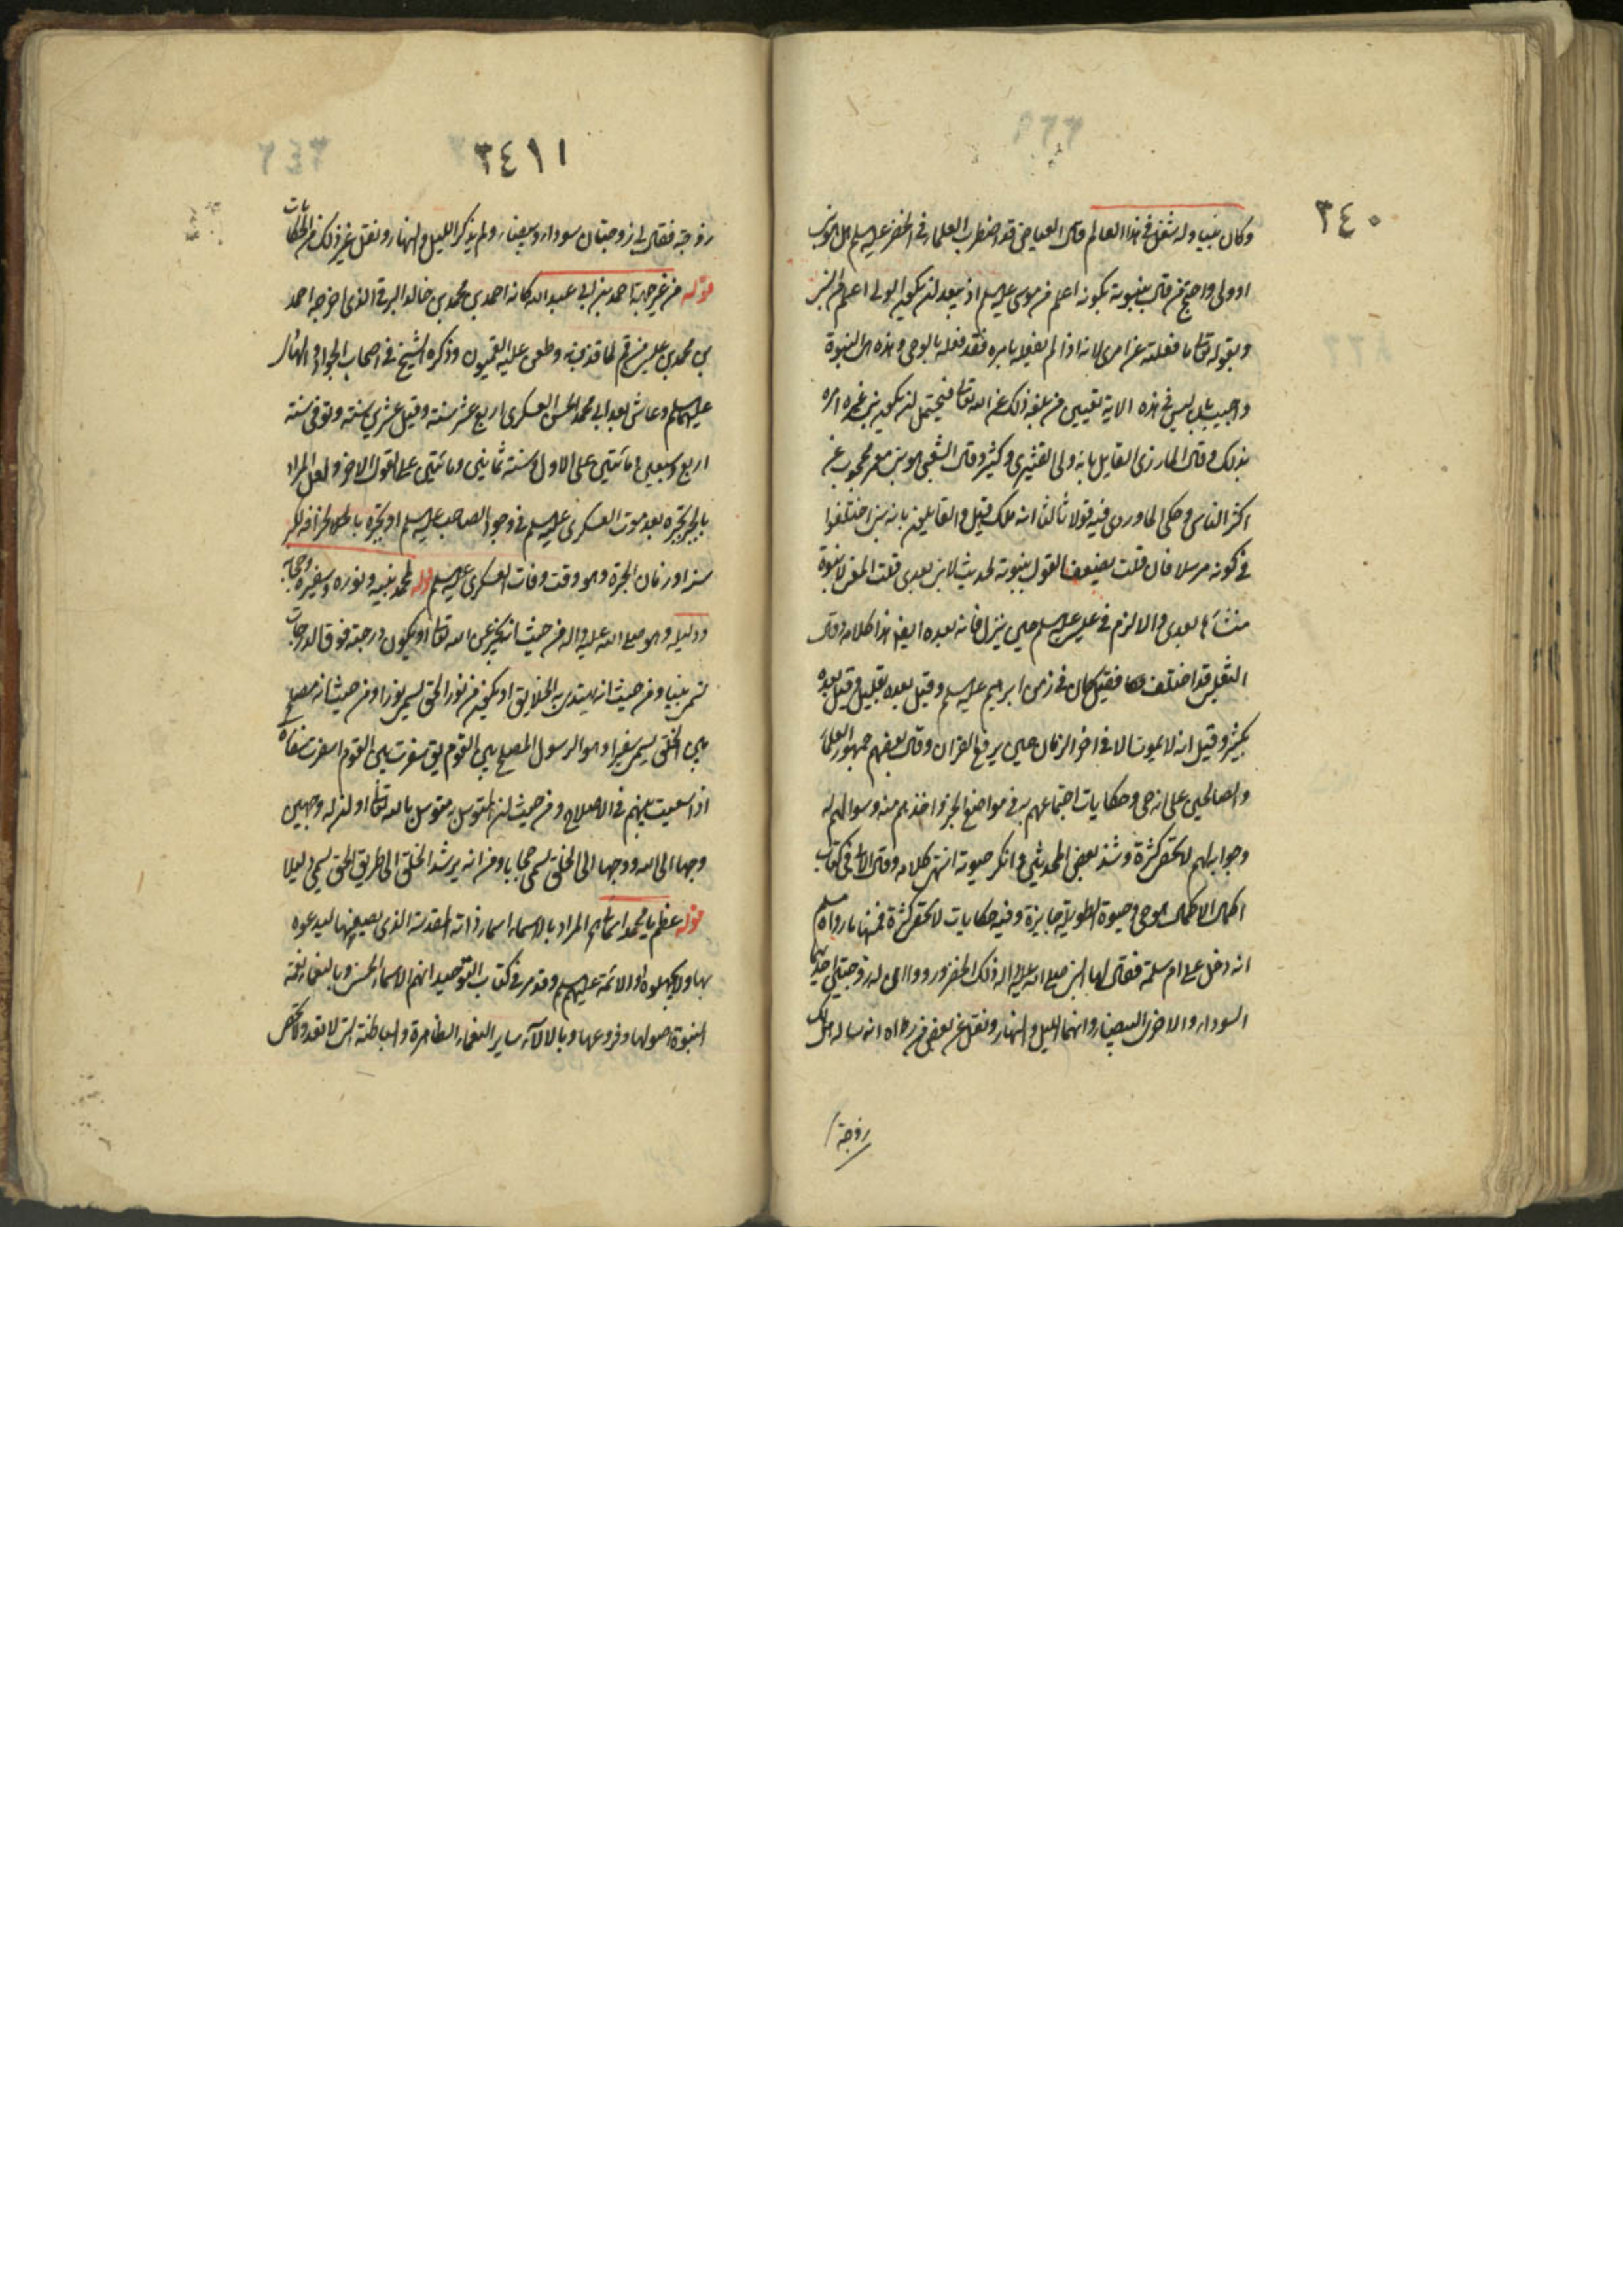 ٣٤٠
وكان نبيا وله شغل في هذا العالم قال العياض قد اضطرب العلماء في الخضر عليه السلم هل هو نبي
او ولي واحتج من قال بنبوته بكونه اعلم من موسى عليه السلم اذ يبعد ان يكون الولي اعلم من النبي
وبقوله تعالى ما فعلته عن امري لانه اذا لم يفعله بامره فقد فعله بالوحي وهذه هي النبوة
واجيب بان ليس في هذه الاية تعيين من بلغه ذلك عن الله تعالى فيحتمل ان يكون نبي غيره امره
بذلك وقال المازري القايل بانه ولي القشيري وكثير وقال الشعبي هو نبي معمر محجوب عن
اكثر الناس وحكى الماوردي فيه قولا ثالثا انه ملك قيل والقايلين بانه نبي اختلفوا
في كونه مرسلا فان قلت يضعف القول بنبوته لحديث لا نبي بعدي قلت المعنى لا نبوة
منشأها بعدي والا لزم في عيسى عليه السلم حين ينزل فانه بعده ايضا هذا كلامه وقال
الثعلبي قد اختلف فقيل كان في زمن ابرهيم عليه السلم وقيل بعده بقليل وقيل بعده
بكثير وقيل انه لا يموت الا في اخر الزمان حين يرفع القران وقال بعضهم جمهور العلماء
والصالحين على انه حي وحكايات اجتماعهم به في مواضع الخير واخذهم منه وسوالهم له
وجوابه لهم لا تحصى كثرة وشذ بعض المحدثين وانكر حيوته انتهى كلامه وقال الابي في كتاب
اكمال الاكمال هو حي وحيوة الطويلة جايزة وفيه حكايات لا تحصى كثرة فمنها ما رواه مسلم
انه دخل على ام سلمة فقال لها النبي صلى الله عليه واله ذلك الخضر ورووا ان له زوجتين احديهما
السوداء والاخرى البيضاء وانهما الليل والنهار ونقل عن بعض من راه انه ساله هل لك
زوجة
٣٤١١
زوجة فقال لي زوجتان سوداء وبيضاء ولم يذكر الليل والنهار ونقل غير ذلك من الحكايات
قوله من غير جهة احمد بن ابي عبد الله كانه احمد بن محمد بن خالد البرقي الذي اخرجه احمد
بن محمد بن عيسى من قم لما قذف به وطعن عليه القميون وذكره الشيخ في اصحاب الجواد والهادي
عليهما السلم وعاش بعد ابي محمد الحسن العسكري اربع عشر سنة وقيل عشرين سنة وتوفى سنة
اربع وسبعين ومائتين على الاول وسنة ثمانين ومائتين على القول الاخر ولعل المراد
بالحيرة تحيره بعد موت العسكري عليه السلم في وجود الصاحب عليه السلم او تحيره
سنه او زمان الحيرة وهو وقت وفات العسكري عليه السلم قوله لمحمد نبيه ونوره وسفيره وحجابه
ودليله وهو صلى الله عليه واله من حيث انه يخبر عن الله تعالى او يكون درجته فوق الدرجات
يسمى نبيا ومن حيث انه يهتدي به الخلايق او تكونه من نور الحق يسمى نورا ومن حيث انه مصلح
بين الخلق يسمى سفيرا وهو الرسول المصلح بين القوم يق سفرت بين القوم اسفر سفارة
اذا سعيت بينهم في الاصلاح ومن حيث ان المتوسل به متوسل بالله تعالى او ان له وجهين
وجها الى الله ووجها الى الخلق يسمى حجابا ومن انه يرشد الخلق الى طريق الحق يسمى دليلا
قوله عظم يا محمد اسمائي المراد بالاسماء اسماء ذاته المقدسة الذي يصفه بها ليدعوه
بها ولا يجهلوه او الائمة عليهم السلم وقد مر في كتاب التوحيد انهم الاسماء الحسنى وبالنعماء نعمة
النبوة اصولها وفروعها وبالالاء ساير النعماء الظاهرة والباطنة التي لا تعد ولا تحصى